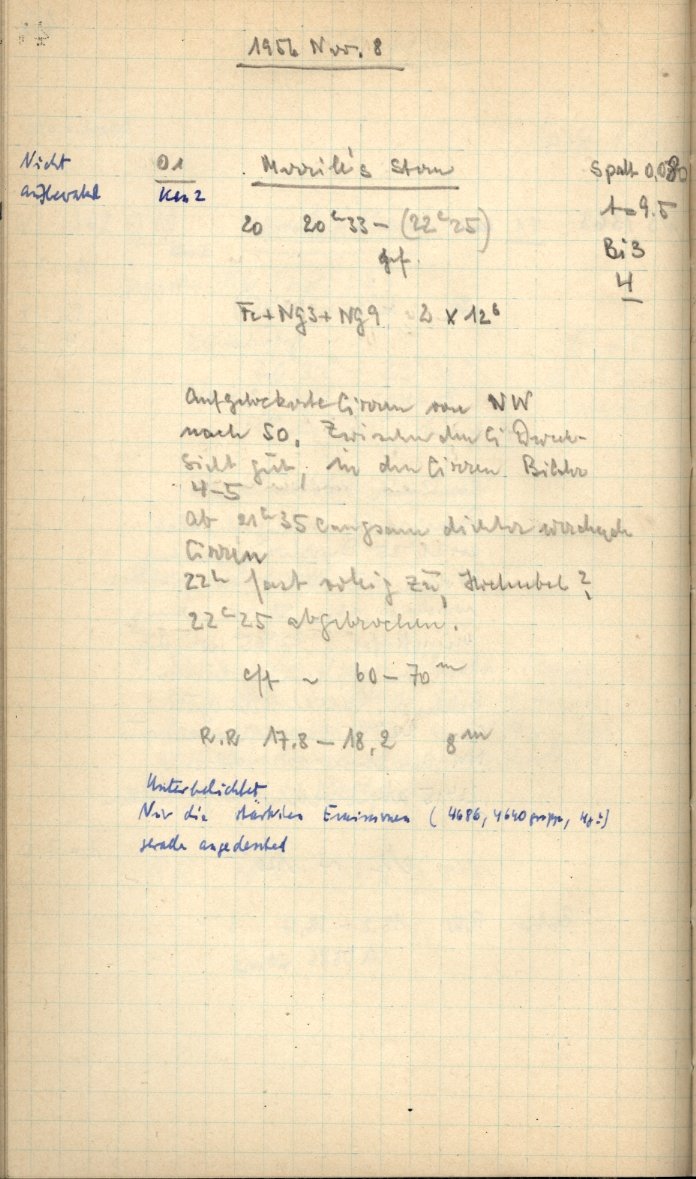 1956 Nov. 8
Nicht
aufbewahrt
01
Ken 2
Merrill's Stern
Spalt 0,080
t=9.5
Bi 3
4
20 20h33 – (22h25)
Fe+Ng3+Ng9 2 x 12s
Aufgelockerte Cirren von NW
nach SO. Zwischen den Ci Durch-
sicht gut, in den Cirren Bilder
4–5
ab 21h35 langsam dichter werdende
Cirren
22h fast völlig zu, Hochnebel?
22h25 abgebrochen.
eff ~ 60–70m
R.R 17.8 – 18,2 8m
Unterbelichtet
Nur die stärksten Emissionen (4686, 4640 gruppe,
gerade angedeutet